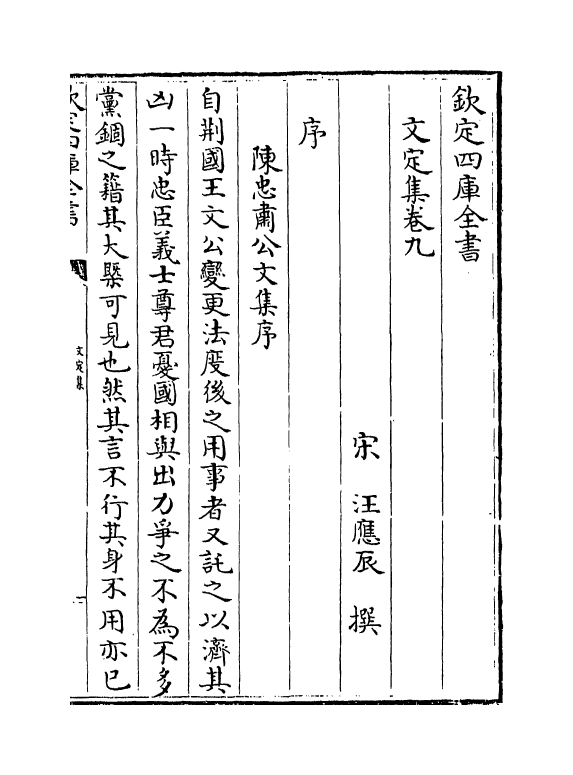 欽定四庫全書
文定集卷九
宋 汪應辰 撰
序
陳忠肅公文集序
自荆國王文公變更法度後之用事者又託之以濟其
凶一時忠臣義士尊君憂國相與出力爭之不為不多
黨錮之籍其大槩可見也然其言不行其身不用亦已
欽定四庫全書
文定集
一